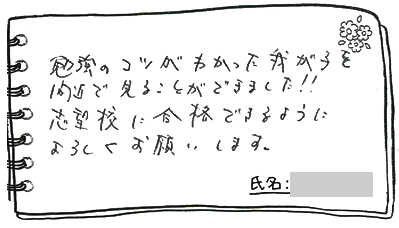 勉強のコツがわかった我が子を
間近で見ることができました!!
志望校に合格できるように
よろしくお願いします。
氏名: